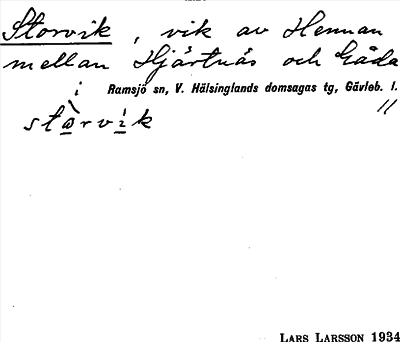 Storvik, vik av Hennan
mellan Hjärtnäs och Gåda
i Ramsjö sn, V. Hälsinglands domsagas tg, Gävleb. l.
stòrvìk
LARS LARSSON 1934